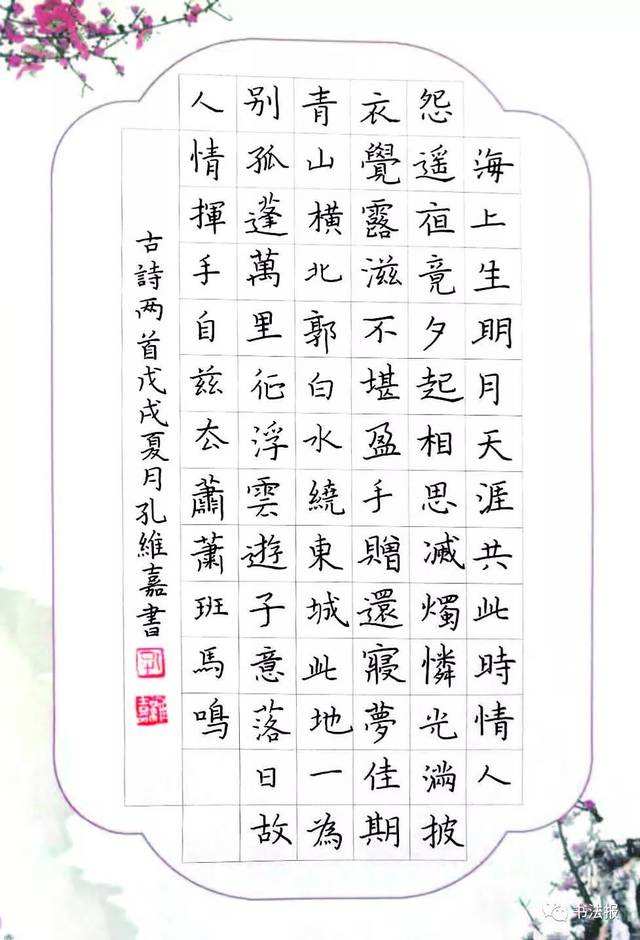 海上生明月天涯共此時情人
怨遥夜竟夕起相思滅燭憐光滿披
衣覺露滋不堪盈手贈還寢夢佳期
青山橫北郭白水繞東城此地一為
别孤蓬萬里征浮雲遊子意落日故
人情揮手自兹去蕭蕭班馬鳴
古詩两首戊戌夏月孔維嘉書
书法报